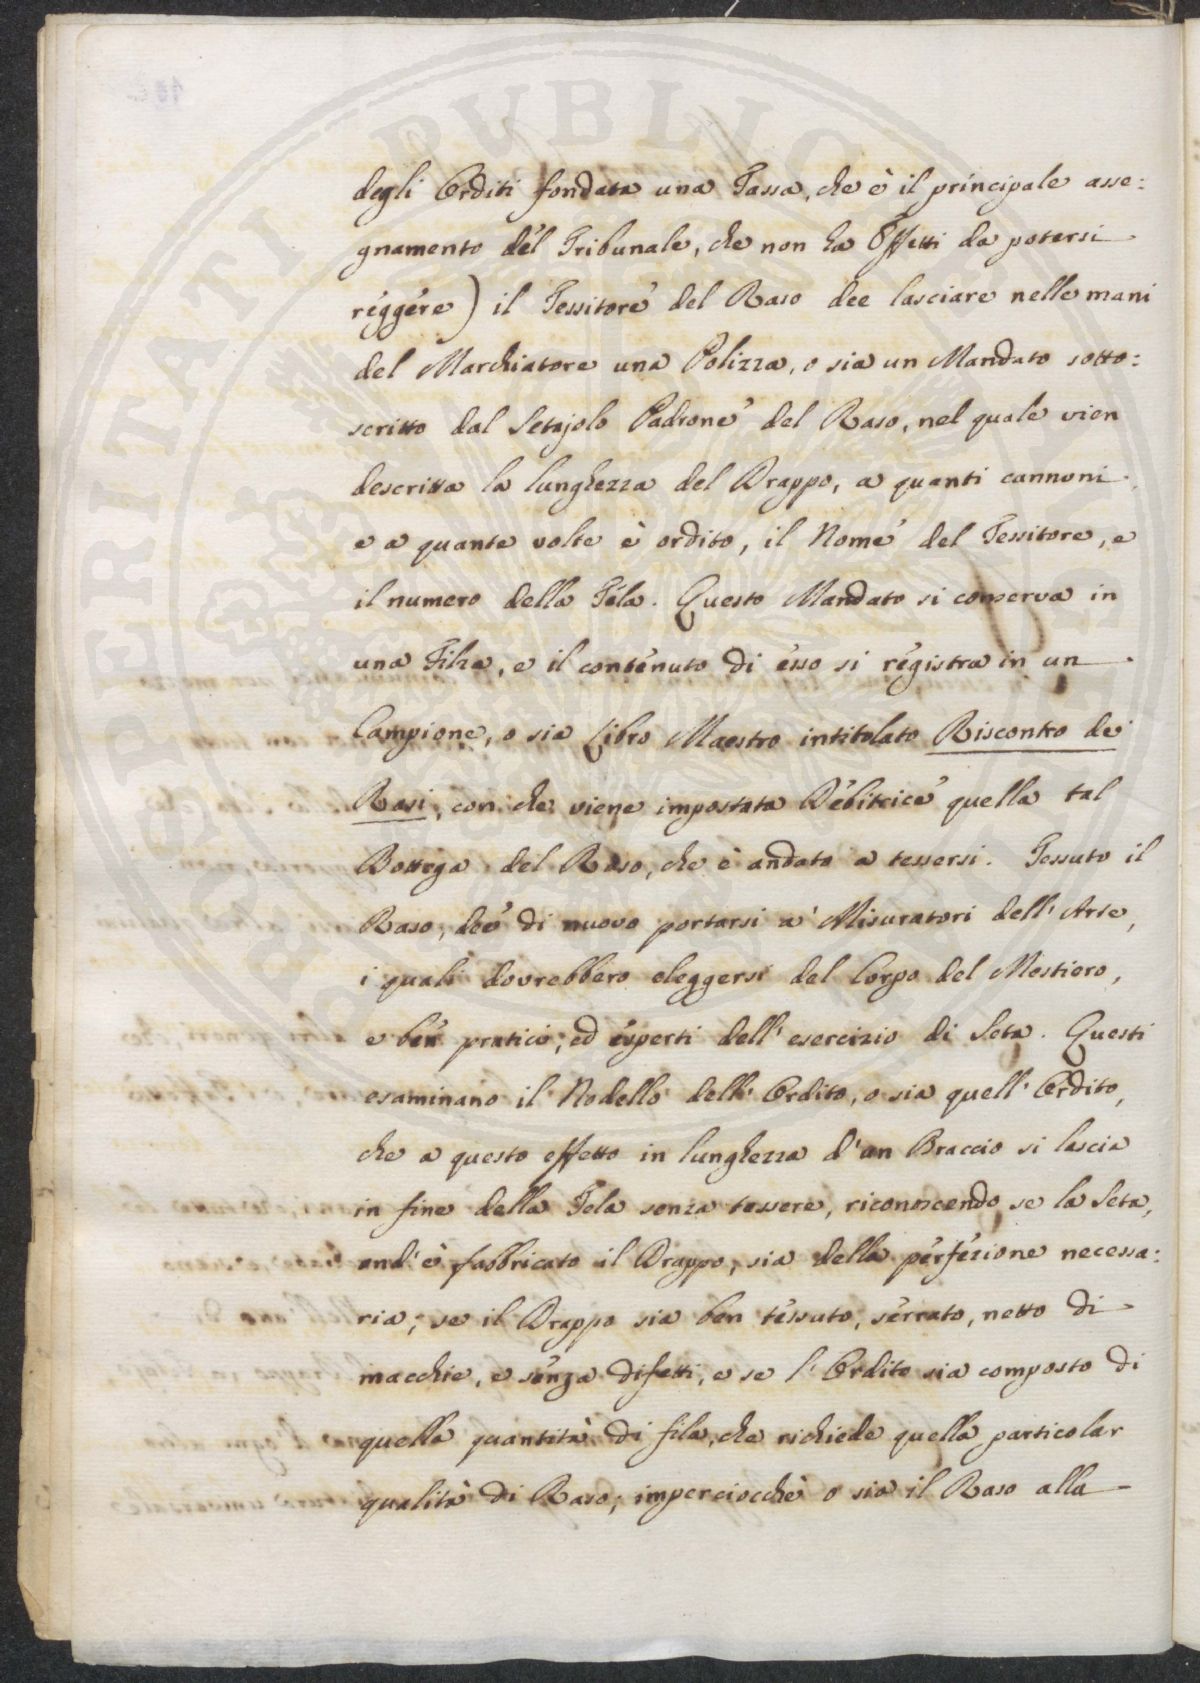 degli Orditi fondata una Tassa, che è il principale asse:
gnamento del Tribunale, che non ha Effetti da potersi
reggere) il Tessitore del Raso dee lasciare nelle mani
del Marchiatore una Polizza, o sia un Mandato sotto:
scritto dal Setajolo Padrone del Raso, nel quale vien
descritta la lunghezza del Drappo, a quanti cannoni
e a quante volte è ordito, il Nome del Tessitore, e
il numero della Tela. Questo Mandato si conserva in
una Filza, e il contenuto di esso si registra in un
Campione, o sia Libro Maestro intitolato Riscontro de'
Rasi, con che viene impostata Debitrice quella tal
Bottega del Raso, che è andato a tessersi. Tessuto il
Raso, dee di nuovo portarsi a' Misuratori dell'Arte,
i quali dovrebbero eleggersi del Corpo del Mestiero,
e ben pratici, ed esperti dell'esercizio di Seta. Questi
esaminano il Modello dell'Ordito, o sia quell'Ordito,
che a questo effetto in lunghezza d'un Braccio si lascia
in fine della Tela senza tessere, riconoscendo se la Seta,
ond'è fabbricato il Drappo, sia della perfezione necessa:
ria; se il Drappo sia ben tessuto, serrato, netto di
macchie, e senza difetti, e se l'Ordito sia composto di
quella quantità di fila, che richiede quella particolar
qualità di Raso; imperciocchè o sia il Raso alla
PERITATI PUBLICAE